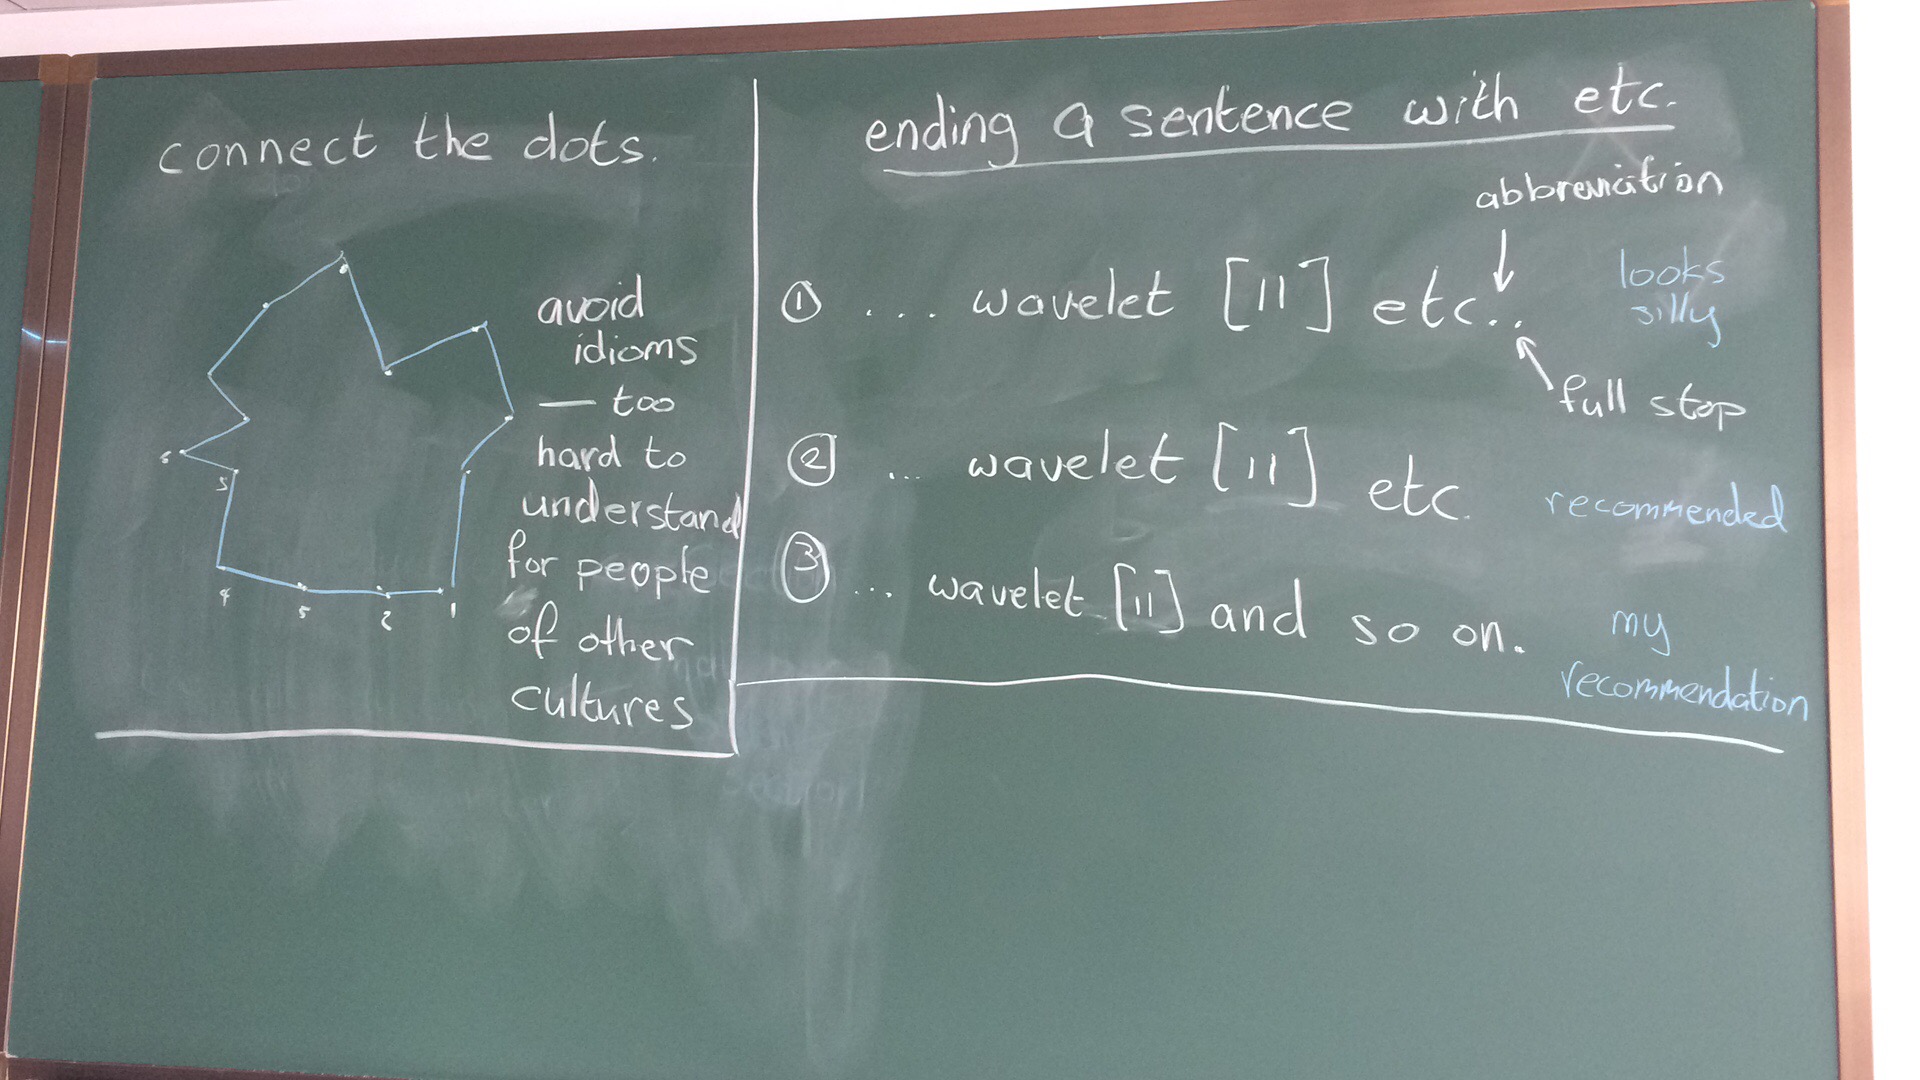 connect the dots.
avoid
idioms
— too
hard to
understand
for people
of other
cultures
6
5
4
5
2
1
ending a sentence with etc.
abbreviation
① ... wavelet [11] etc..
looks
silly
full stop
② ... wavelet [11] etc.
recommended
③ ... wavelet [11] and so on.
my
recommendation